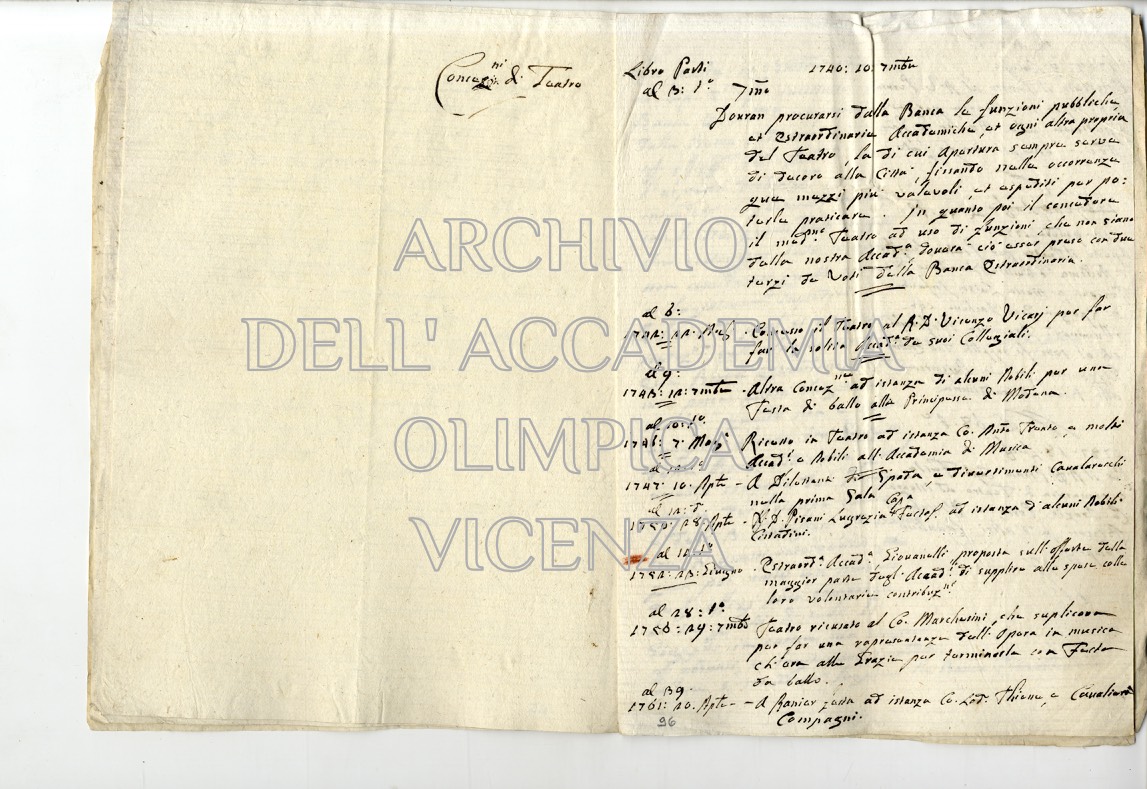 Concez.ni di Teatro
Libro Parti 1740: 10: 7mbre
al 3: t.o 7mo
Douran procurarsi dalla Banca le funzioni pubbliche
et estraordinarie Accademiche, et ogni altra propria
del Teatro, la di cui Apertura sempre serve
di decoro alla Città, fissando nelle occorrenze
que mezzi più valevoli, et espediti per po-
terle praticare. In quanto poi il conceder
il med.mo Teatro ad uso di funzioni, che non siano
della nostra Accad.a dourà ciò esser preso con due
terzi de Voti della Banca Estraordinaria.
al 6:
Concesso il Teatro al R. D. Vicenzo Vicarj per far
far la solita Accad.a da suoi Collegiali.
al 9:
1743: 12: 7mbre - Altra Concez.ne ad istanza di alcuni Nobili per una
Festa di ballo alla Principessa di Modena.
al 10: t.o
1746: 7: Mag.o Ricusso in Teatro ad istanza Co. Ant.o Trento, e molti
Accad.i e Nobili all'Accademia di Musica
1747: 10: Aple - A Dilettanti di Spada, e divertimenti Cavalereschi
nella prima Sala
28: Aple - D. Pisani Lugrezia ad istanza d'alcuni Nobili
Cittadini.
al 14: t.o
1752: 23: Giugno - Estraord.a Accad.a Giovanelli proposta sull'offerta della
maggior parte degl'Accad.ci di supplire alle spese colle
loro volontarie contribuz.ni
al 28: t.o
1756: 29: 7mbre Teatro ricusato al Co. Marchesini, che suplicava
per far una rapresentanza dell'Opera in musica
ch'era alle Grazie per terminarla con Festa
da ballo.
al 39.
1761: 20. Aple - A Ranier ad istanza Co. Lod. Thiene, e Cavalieri
Compagni.
96
ARCHIVIO
DELL' ACCADEMIA
OLIMPICA
VICENZA